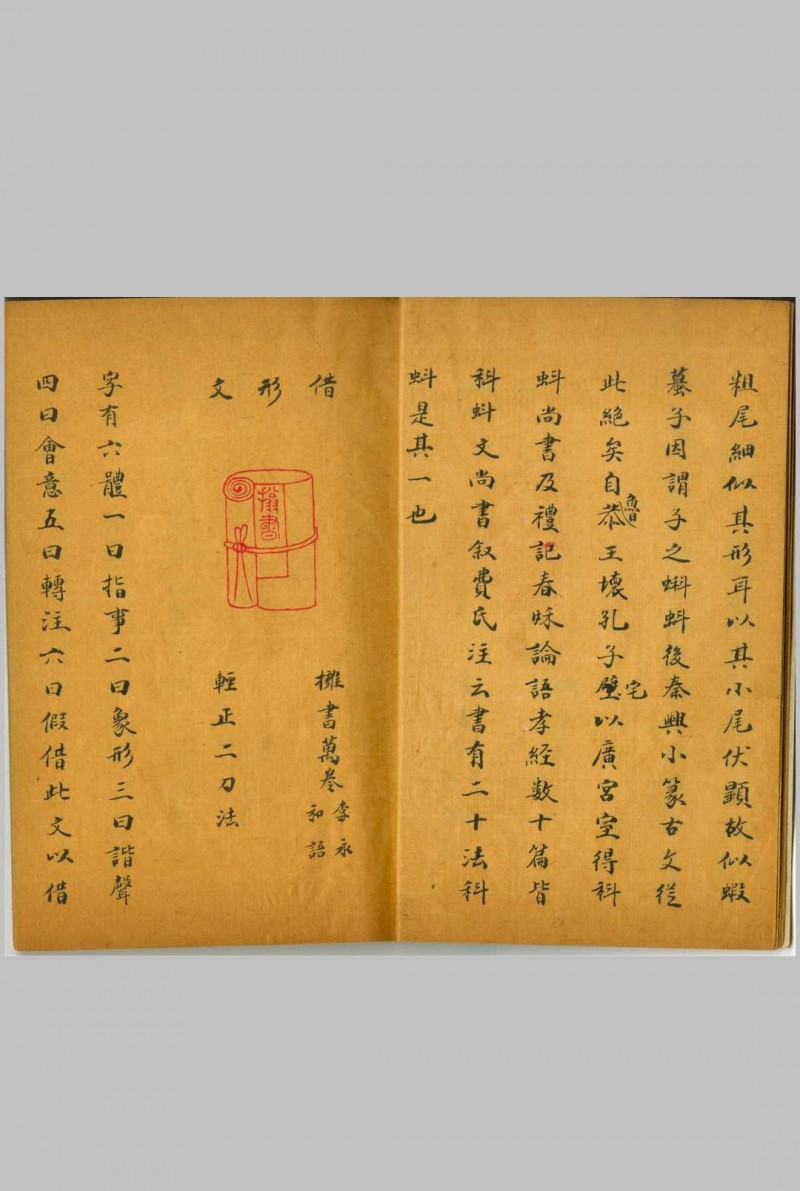 粗尾細似其形耳以其小尾伏顕故似蝦
蟇子因謂子之蝌蚪後秦興小篆古文從
此絶矣自恭魯王壞孔子壁宅以廣宮室得科
蚪尚書及禮記春秋論語孝経数十篇皆
科蚪文尚書叙費氏注云書有二十法科
蚪是其一也
借形文
擁書
擁書萬巻李永和語
輕正二刀法
字有六體一曰指事二曰象形三曰諧聲
四曰會意五曰轉注六曰假借此文以借